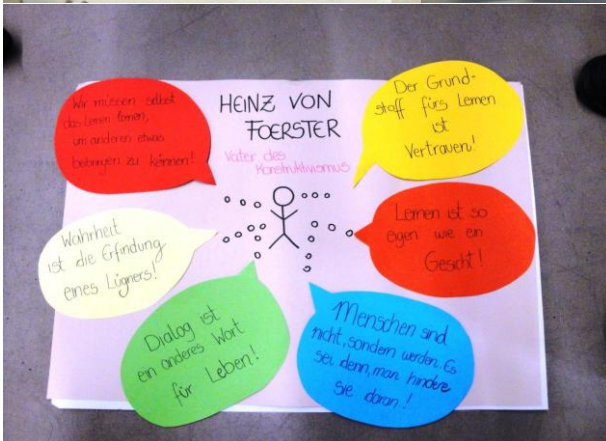 HEINZ VON
FOERSTER
Vater des
Konstruktivismus
Wir müssen selbst
das Lernen lernen,
um anderen etwas
beibringen zu können!
Der Grund-
stoff fürs Lernen
ist
Vertrauen!
Wahrheit
ist die Erfindung
eines Lügners!
Lernen ist so
eigen wie ein
Gesicht!
Dialog ist
ein anderes Wort
für Leben!
Menschen sind
nicht, sondern werden. Es
sei denn, man hindere
sie daran!